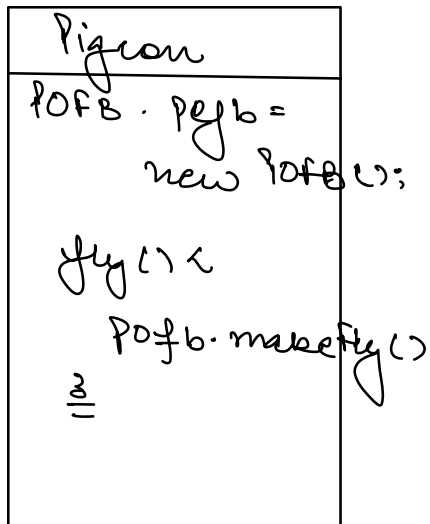 Pigeon
POFB . pofb =
new POFB();
fly() {
pofb.makeFly()
}